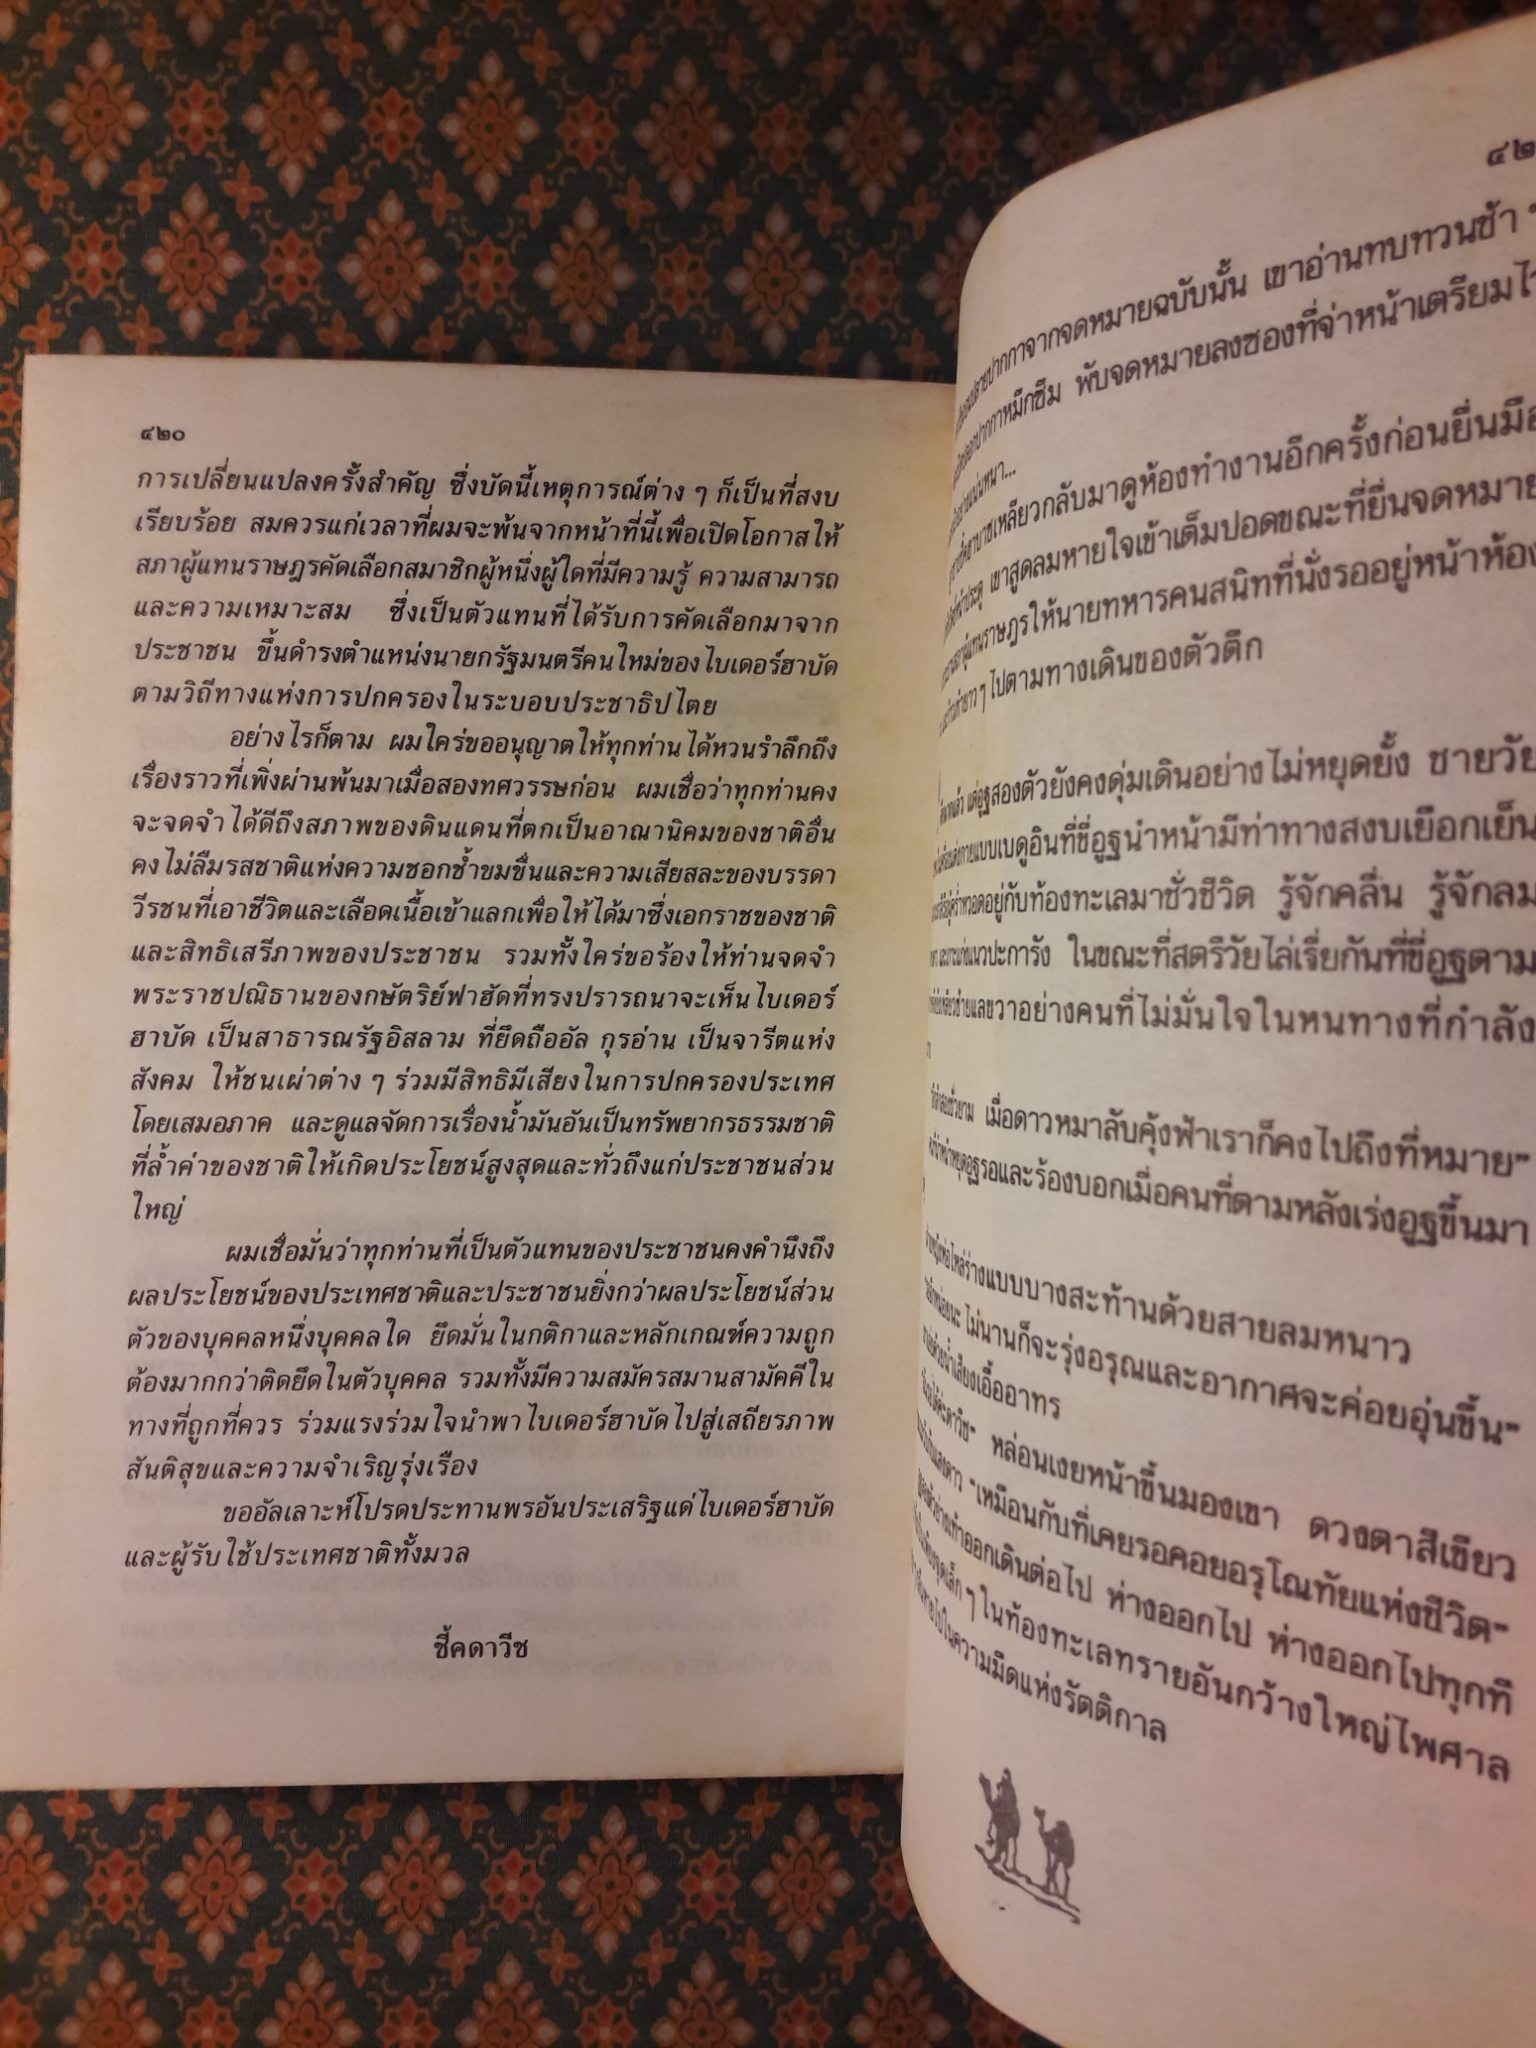 ๔๒๐
การเปลี่ยนแปลงครั้งสำคัญ ซึ่งบัดนี้เหตุการณ์ต่าง ๆ ก็เป็นที่สงบ
เรียบร้อย สมควรแก่เวลาที่ผมจะพ้นจากหน้าที่นี้เพื่อเปิดโอกาสให้
สภาผู้แทนราษฎรคัดเลือกสมาชิกผู้หนึ่งผู้ใดที่มีความรู้ ความสามารถ
และความเหมาะสม ซึ่งเป็นตัวแทนที่ได้รับการคัดเลือกมาจาก
ประชาชน ขึ้นดำรงตำแหน่งนายกรัฐมนตรีคนใหม่ของไบเดอร์ฮาบัด
ตามวิถีทางแห่งการปกครองในระบอบประชาธิปไตย
อย่างไรก็ตาม ผมใคร่ขออนุญาตให้ทุกท่านได้หวนรำลึกถึง
เรื่องราวที่เพิ่งผ่านพ้นมาเมื่อสองทศวรรษก่อน ผมเชื่อว่าทุกท่านคง
จะจดจำได้ดีถึงสภาพของดินแดนที่ตกเป็นอาณานิคมของชาติอื่น
คงไม่ลืมรสชาติแห่งความชอกช้ำขมขื่นและความเสียสละของบรรดา
วีรชนที่เอาชีวิตและเลือดเนื้อเข้าแลกเพื่อให้ได้มาซึ่งเอกราชของชาติ
และสิทธิเสรีภาพของประชาชน รวมทั้งใคร่ขอร้องให้ท่านจดจำ
พระราชปณิธานของกษัตริย์ฟาฮัดที่ทรงปรารถนาจะเห็นไบเดอร์
ฮาบัด เป็นสาธารณรัฐอิสลาม ที่ยึดถืออัล กุรอ่าน เป็นจารีตแห่ง
สังคม ให้ชนเผ่าต่าง ๆ ร่วมมีสิทธิมีเสียงในการปกครองประเทศ
โดยเสมอภาค และดูแลจัดการเรื่องน้ำมันอันเป็นทรัพยากรธรรมชาติ
ที่ล้ำค่าของชาติให้เกิดประโยชน์สูงสุดและทั่วถึงแก่ประชาชนส่วน
ใหญ่
ผมเชื่อมั่นว่าทุกท่านที่เป็นตัวแทนของประชาชนคงคำนึงถึง
ผลประโยชน์ของประเทศชาติและประชาชนยิ่งกว่าผลประโยชน์ส่วน
ตัวของบุคคลหนึ่งบุคคลใด ยึดมั่นในกติกาและหลักเกณฑ์ความถูก
ต้องมากกว่าติดยึดในตัวบุคคล รวมทั้งมีความสมัครสมานสามัคคีใน
ทางที่ถูกที่ควร ร่วมแรงร่วมใจนำพาไบเดอร์ฮาบัดไปสู่เสถียรภาพ
สันติสุขและความจำเริญรุ่งเรือง
ขออัลเลาะห์โปรดประทานพรอันประเสริฐแด่ไบเดอร์ฮาบัด
และผู้รับใช้ประเทศชาติทั้งมวล
ชี้คดาวีช
ปลายปากกาจากจดหมายฉบับนั้น เขาอ่านทบทวนช้า ๆ
ปากกาหมึกซึม พับจดหมายลงซองที่จ่าหน้าเตรียมไว้
เหลียวกลับมาดูห้องทำงานอีกครั้งก่อนยื่นมือ
เขาสูดลมหายใจเข้าเต็มปอดขณะที่ยื่นจดหมาย
ผู้แทนราษฎรให้นายทหารคนสนิทที่นั่งรออยู่หน้าห้อง
ยาว ๆ ไปตามทางเดินของตัวตึก
แต่อูฐสองตัวยังคงดุ่มเดินอย่างไม่หยุดยั้ง ชายวัย
แบบเบดูอินที่ขี่อูฐนำหน้ามีท่าทางสงบเยือกเย็น
อยู่กับท้องทะเลมาชั่วชีวิต รู้จักคลื่น รู้จักลม
แนวปะการัง ในขณะที่สตรีวัยไล่เรี่ยกันที่ขี่อูฐตาม
ซ้ายแลขวาอย่างคนที่ไม่มั่นใจในหนทางที่กำลัง
เมื่อดาวหมาลับคุ้งฟ้าเราก็คงไปถึงที่หมาย"
หยุดอูฐรอและร้องบอกเมื่อคนที่ตามหลังเร่งอูฐขึ้นมา
ร่างแบบบางสะท้านด้วยสายลมหนาว
ไม่นานก็จะรุ่งอรุณและอากาศจะค่อยอุ่นขึ้น"
น้ำเสียงเอื้ออาทร
หล่อนเงยหน้าขึ้นมองเขา ดวงตาสีเขียว
แสงดาว "เหมือนกับที่เคยรอคอยอรุโณทัยแห่งชีวิต"
ออกเดินต่อไป ห่างออกไป ห่างออกไปทุกที
จุดเล็ก ๆ ในท้องทะเลทรายอันกว้างใหญ่ไพศาล
ไปในความมืดแห่งรัตติกาล